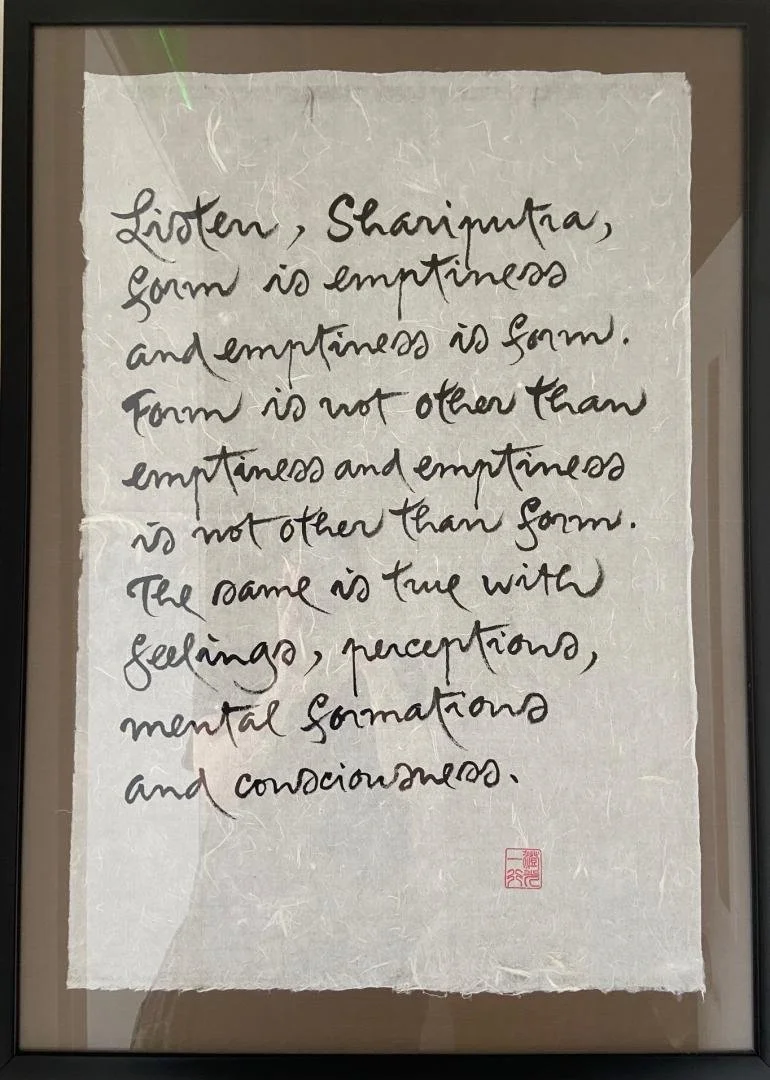 Listen, Shariputra,
form is emptiness
and emptiness is form.
Form is not other than
emptiness and emptiness
is not other than form.
The same is true with
feelings, perceptions,
mental formations
and consciousness.